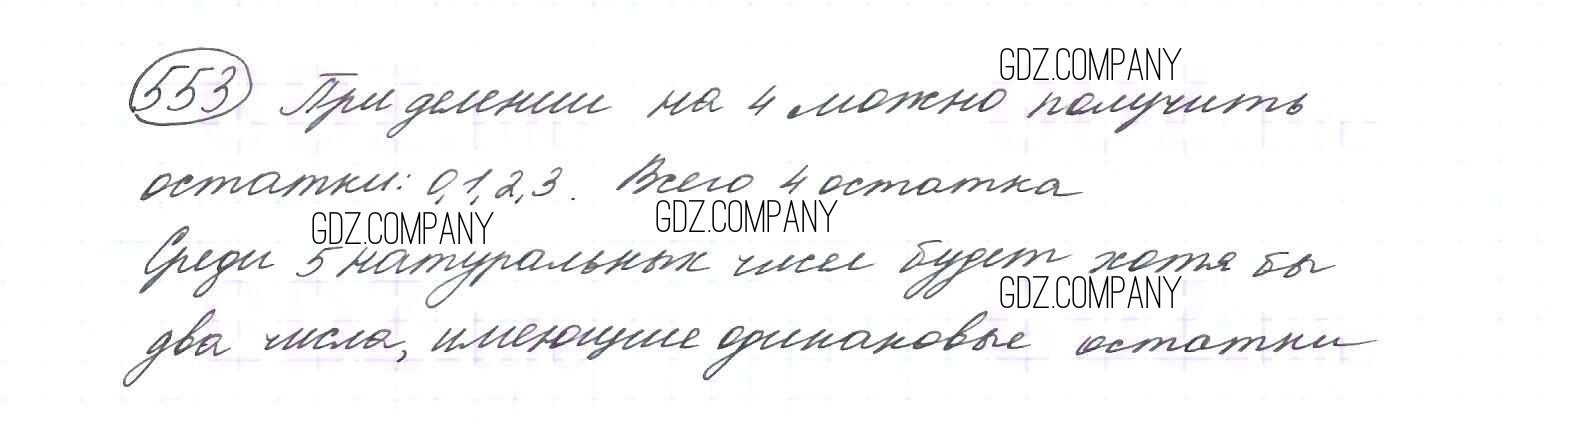 553 При делении на 4 можно получить
остатки: 0,1,2,3. Всего 4 остатка
Среди 5 натуральных чисел будет хотя бы
два числа, имеющие одинаковые остатки
GDZ.COMPANY
GDZ.COMPANY
GDZ.COMPANY
GDZ.COMPANY